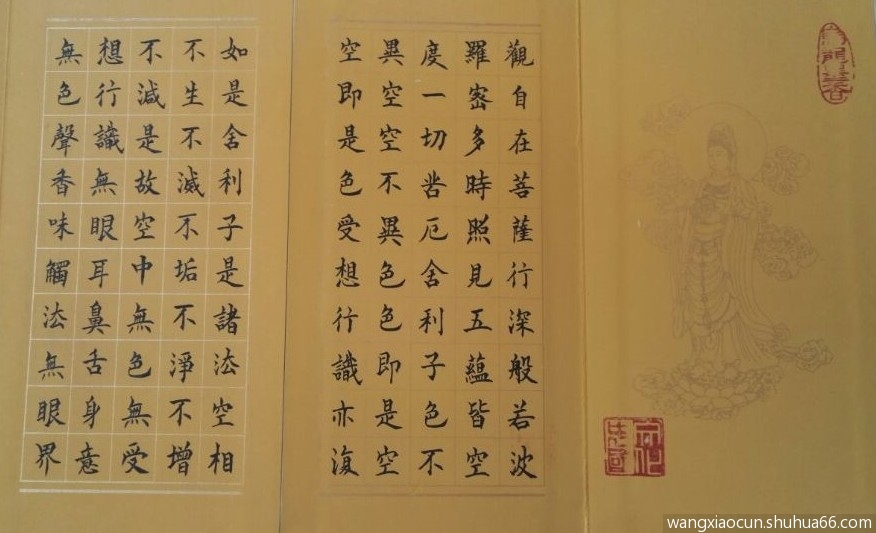 觀自在菩薩行深般若波
羅密多時照見五蘊皆空
度一切苦厄舍利子色不
異空空不異色色即是空
空即是色受想行識亦復
如是舍利子是諸法空相
不生不滅不垢不淨不增
不減是故空中無色無受
想行識無眼耳鼻舌身意
無色聲香味觸法無眼界
wangxiaocun.shuhua66.com